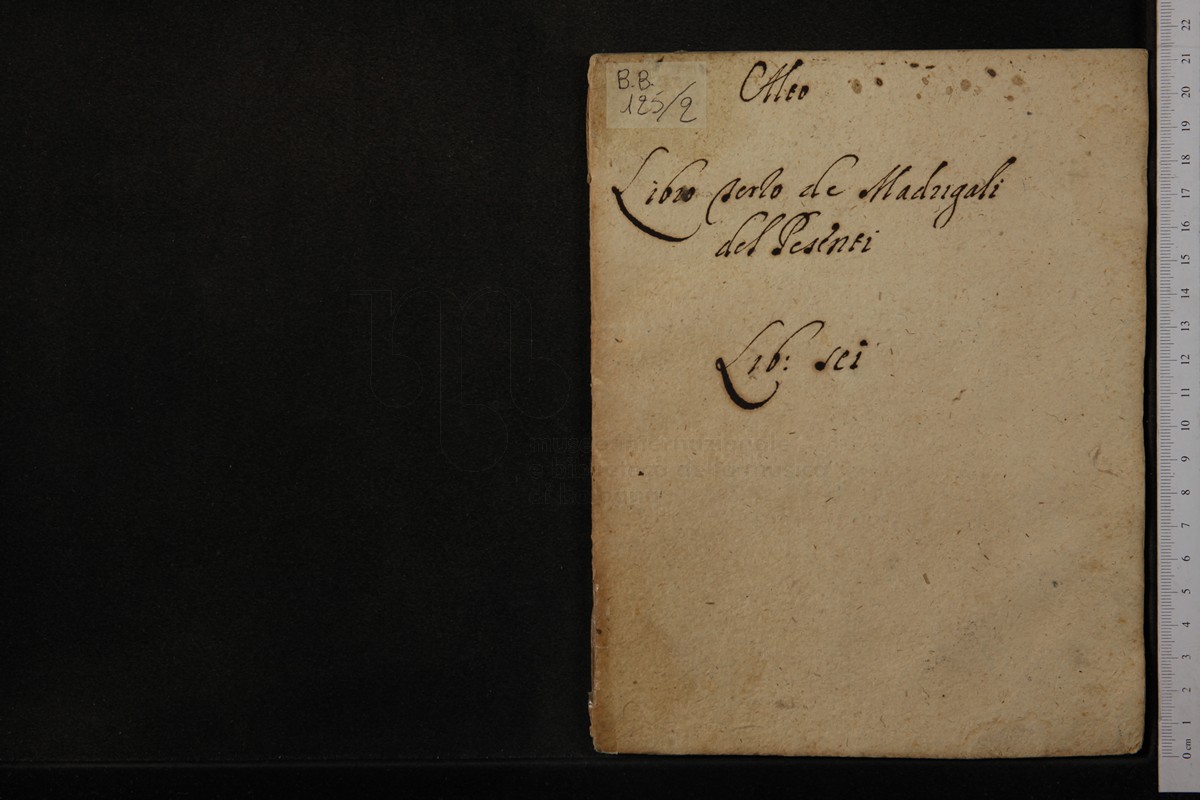 B.B.
125/2
Alto
Libro terto de Madrigali
del Pesenti
Lib: sei
museo internazionale
e biblioteca della musica
di bologna
0 cm 1 2 3 4 5 6 7 8 9 10 11 12 13 14 15 16 17 18 19 20 21 22